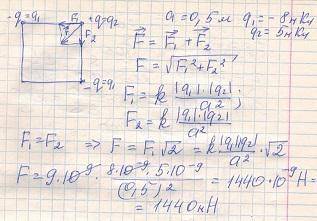 -q=q₁ F₁ +q=q₂ a=0,5 м q₁=-8нКл
F F₂ q₂=5нКл
F⃗=F⃗₁+F⃗₂
F=√F₁²+F₂²
-q=q₁ F₁=k |q₁|·|q₂|/a²;
F₂=k |q₁|·|q₂|/a²
F₁=F₂ ⇒ F=F₁√2=k|q₁||q₂|/a²·√2
F=9·10⁻⁹·8·10⁻⁹·5·10⁻⁹/(0,5)²=1440·10⁻⁹Н=
=1440нН